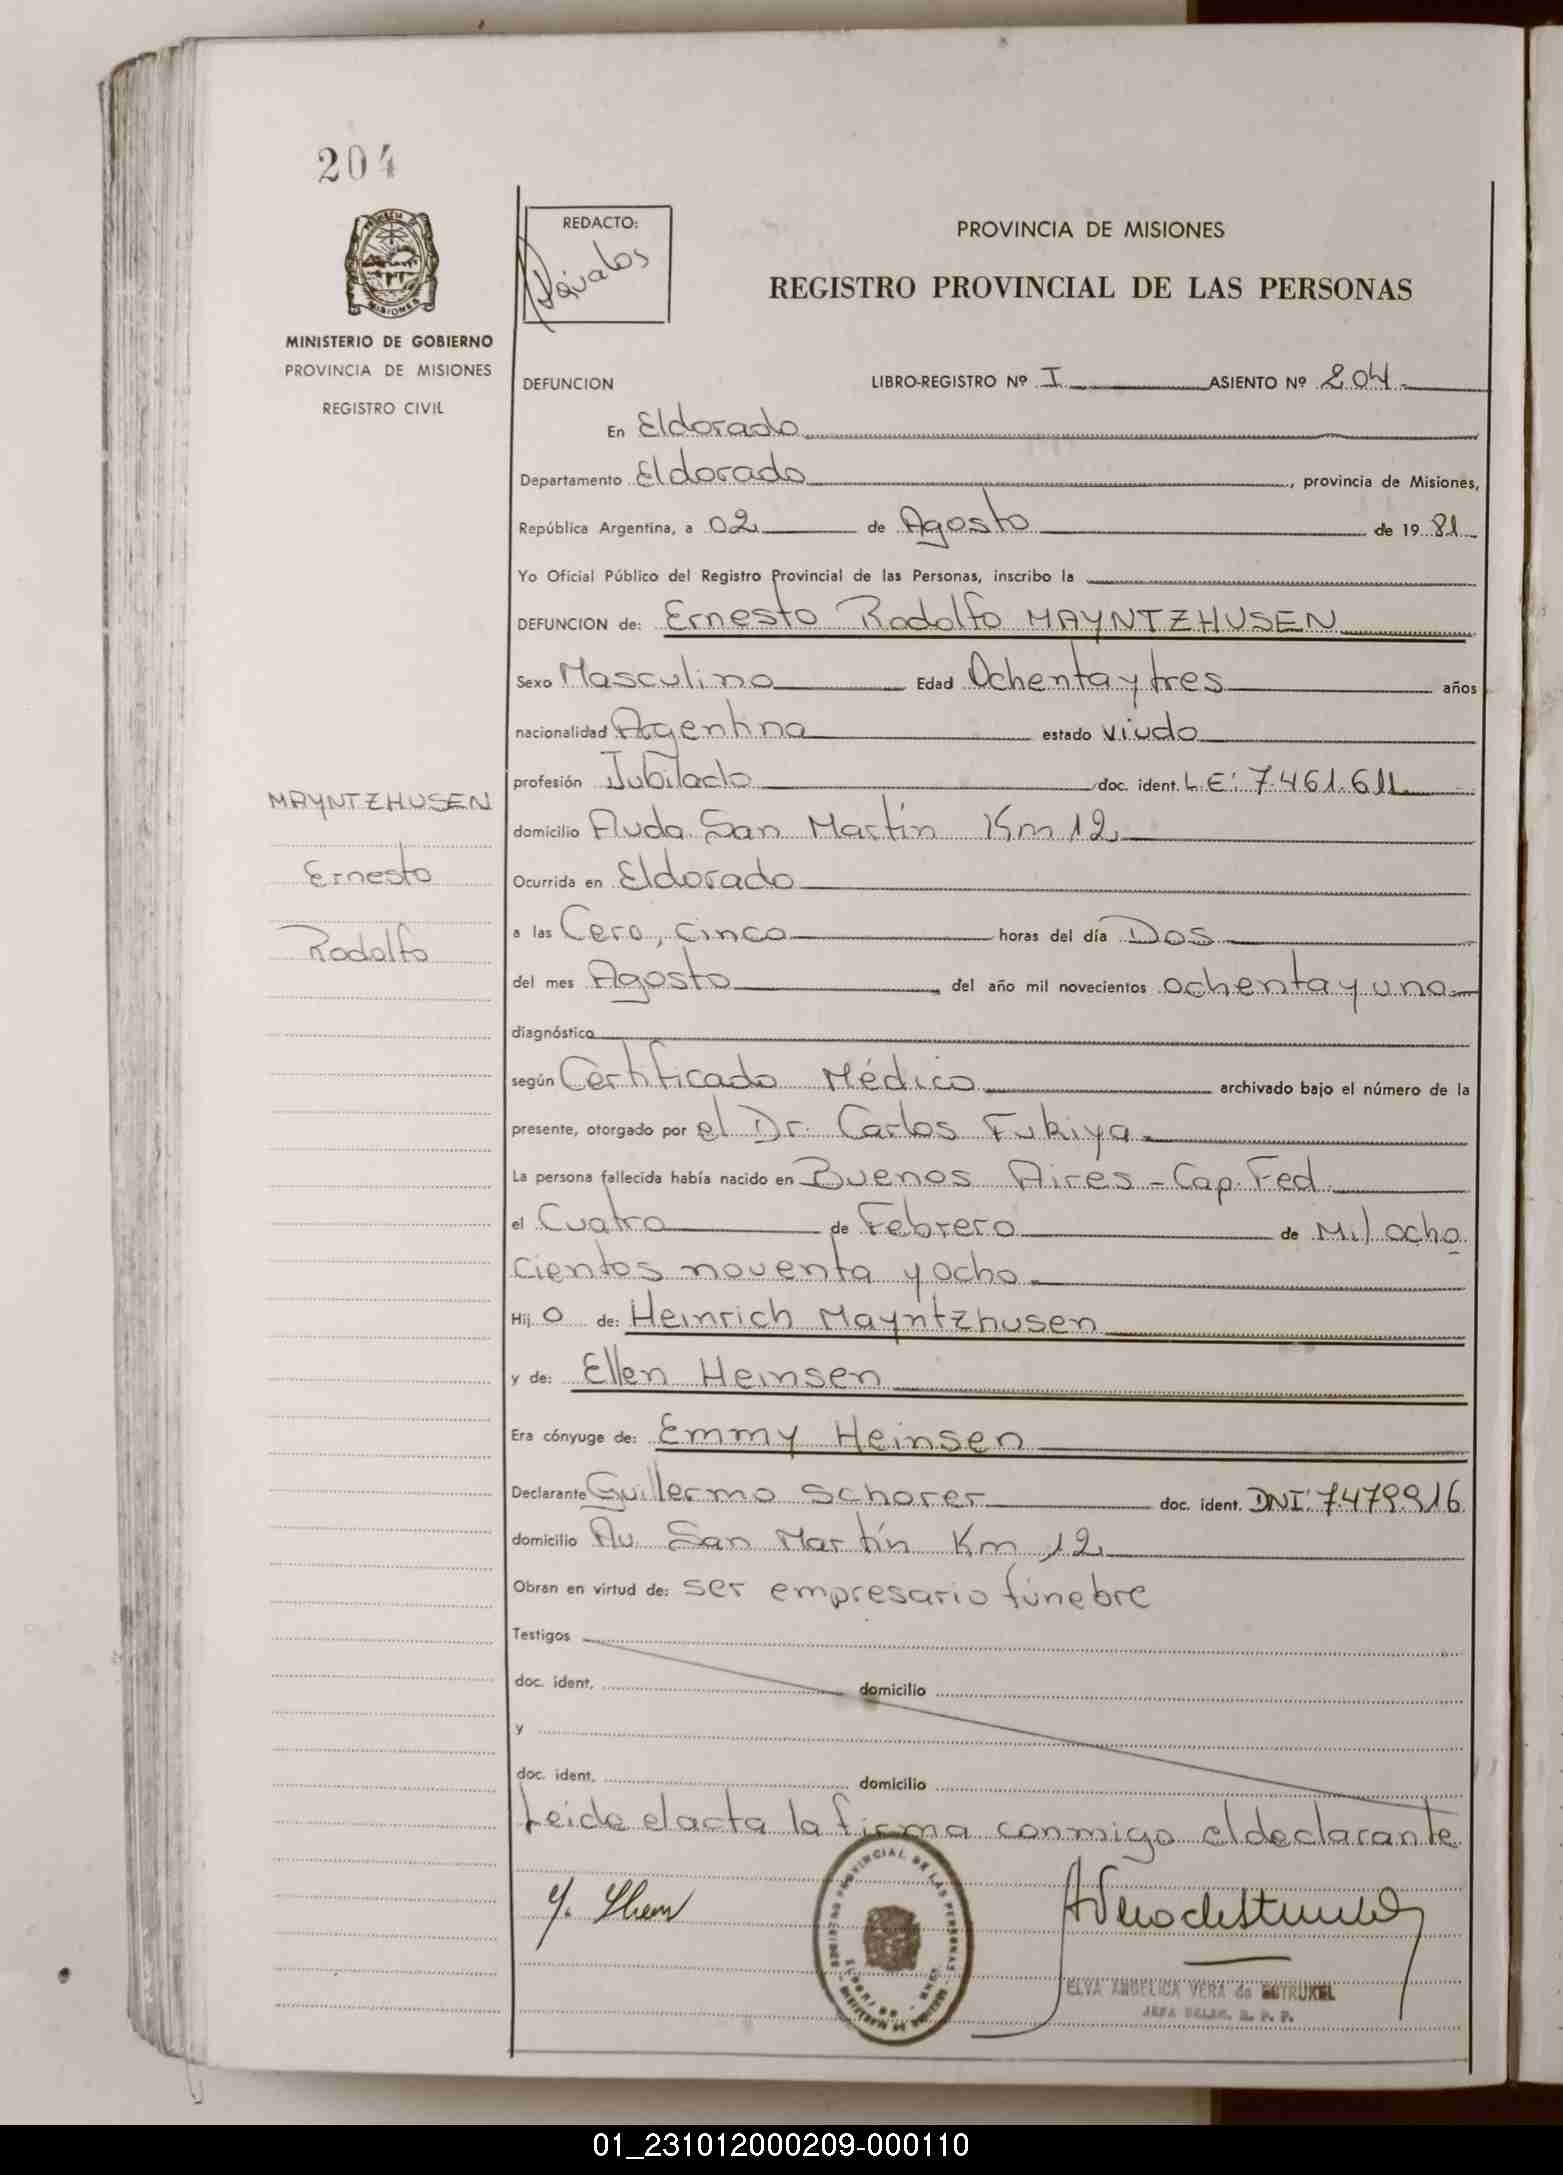 204
PROVINCIA DE
MISIONES
MINISTERIO DE GOBIERNO
PROVINCIA DE MISIONES
REGISTRO CIVIL
REDACTO:
Dávalos
PROVINCIA DE MISIONES
REGISTRO PROVINCIAL DE LAS PERSONAS
DEFUNCION LIBRO-REGISTRO Nº I ASIENTO Nº 204
En Eldorado
Departamento Eldorado, provincia de Misiones,
República Argentina, a 02 de Agosto de 1981
Yo Oficial Público del Registro Provincial de las Personas, inscribo la
DEFUNCION de: Ernesto Rodolfo MAYNTZHUSEN
Sexo Masculino Edad Ochenta y tres años
nacionalidad Agentina estado viudo
profesión Jubilado doc. ident. L.E: 7.461.611
domicilio Avda. San Martín Km 12
Ocurrida en Eldorado
a las Cero, cinco horas del día Dos
del mes Agosto del año mil novecientos ochenta y uno
diagnóstico
según Certificado Médico archivado bajo el número de la
presente, otorgado por el Dr. Carlos Fukiya
La persona fallecida había nacido en Buenos Aires - Cap. Fed.
el Cuatro de Febrero de Mil ocho
cientos noventa y ocho
Hijo de: Heinrich Mayntzhusen
y de: Ellen Heinsen
Era cónyuge de: Emmy Heinsen
Declarante Guillermo Schorer doc. ident. DNI: 7479916
domicilio Av. San Martín Km 12
Obran en virtud de: ser empresario fúnebre
Testigos
doc. ident. domicilio
y
doc. ident. domicilio
Leida el acta la firma conmigo el declarante
MAYNTZHUSEN
Ernesto
Rodolfo
REGISTRO PROVINCIAL DE LAS PERSONAS
ELVA ANGELICA VERA de
JEFA DELEG. R. P. P.
01_231012000209-000110